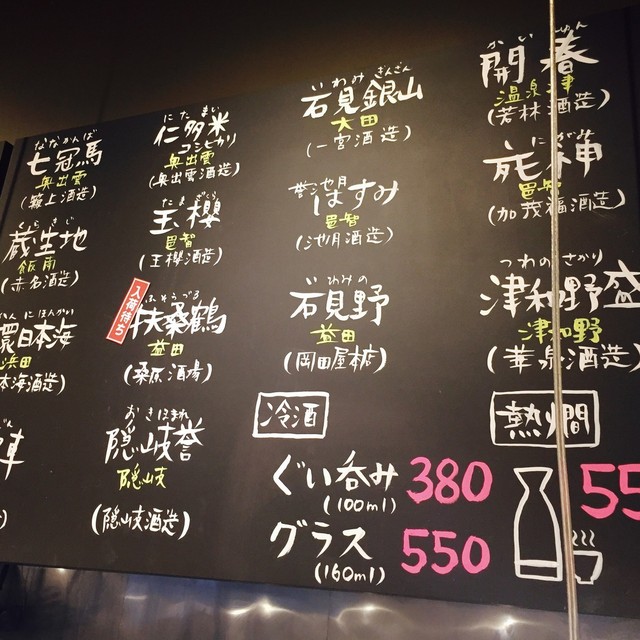 ななかんば
七冠馬
奥出雲
(簸上酒造)
くらきじ
蔵生地
飯南
(赤名酒造)
かんにほんかい
環日本海
浜田
本海酒造)
陣
にたまい
仁多米
コシヒカリ
奥出雲
(奥出雲酒造)
たまざくら
玉櫻
邑智
(玉櫻酒造)
入荷待ち
ふそうづる
扶桑鶴
益田
(桑原酒場)
おきほまれ
隠岐誉
隠岐
(隠岐酒造)
いわみぎんざん
石見銀山
大田
(一宮酒造)
誉池月
はすみ
邑智
(池月酒造)
いわみの
石見野
益田
(岡田屋本店)
かいしゅん
開春
温泉津
(若林酒造)
にがみ
死神
邑智
(加茂福酒造)
つわのさかり
津和野盛
津和野
(華泉酒造)
冷酒
ぐい呑み 380
(100ml)
グラス 550
(160ml)
熱燗
55